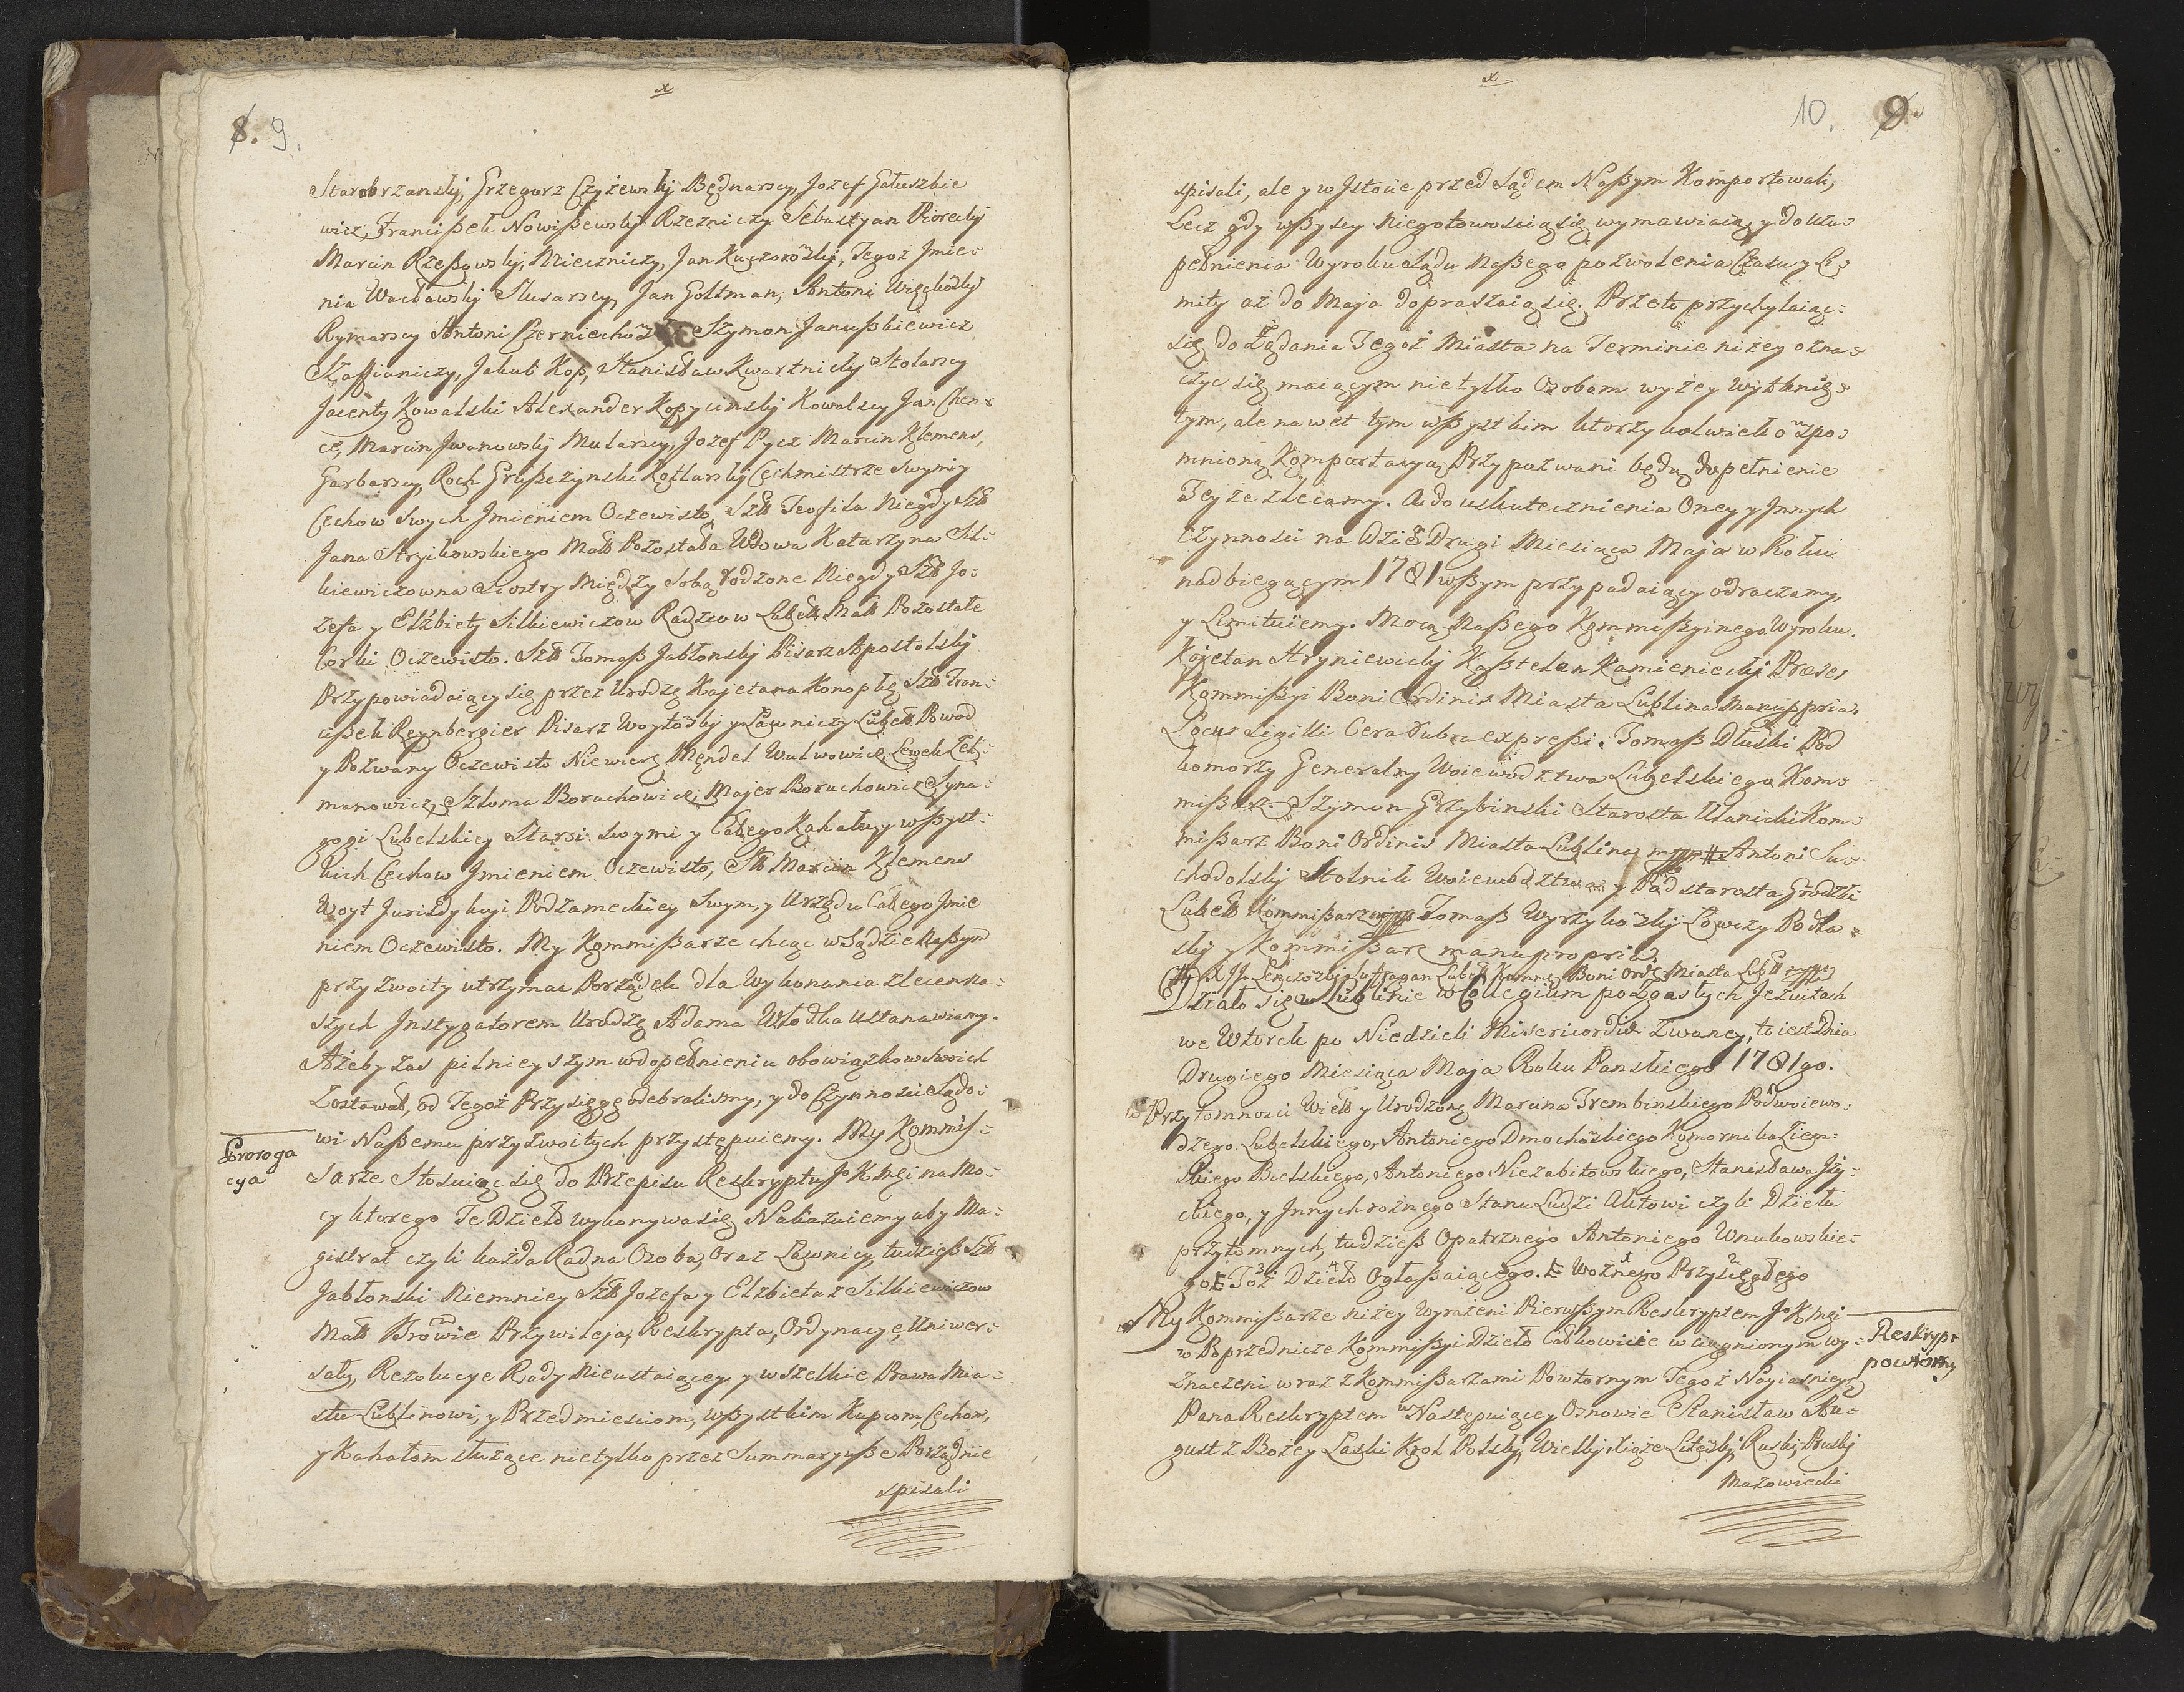 8. 9.
Starobrzanskj, Grzegorz Czyżewskj Będnarscy, Jozef Gałuszkie
wicz, Francißek Nowißewskj Rzeźniczy Sebastyan Pioreckj
Marcin Rzeßowskj, Mieczniczy, Jan Kuczorowskj, Tegoż Jmie=
nia Wacławskj Slusarscy, Jan Goltman, Antoni
Rymarscy Antoni Szymon Janußkiewicz
Szaffianiczy, Jakub Kop, Stanisław Kwartnickj Stolarscy
Jacenty Kowalski Alexander Kopycinskj Kowalscy Jan Chen=
ce, Marcin Jwanowskj Mularscy, Jozef Pycz Marcin Klemens,
Garbarscy, Roch Grußczynski Kotlarskj Cechmistrze Swymi y
Cechow Swych Jmieniem Oczewisto, Szł Teofila Niegdy Szł
Jana Strycikowskiego Małł Pozostała Wdowa Katarzyna Sil=
kiewiczowna Siostry Między Sobą rodzone Niegdy Szł Jo=
zefa y Elżbiety Silkiewiczow Radzcow Lubełł Małł Pozostałe
Corki Oczewisto. Szł Tomaß Jabłonskj Pisarz Apostolskj
Przypowiadaiący się przez Urodzę Kajetana Konopkę Szł Fran=
cißek Reynbergier Pisarz Woytowskj y Ławniczy Lubełł Powod
y Pozwany Oczewisto Niewierę Męndel Wulwowicz, Lewek Zel=
manowicz, Szloma Boruchowicz, Majer Boruchowicz Syna=
gogi Lubelskiey Starsi Swymi y Całego Kahału, y wßyst=
kich Cechow Jmieniem Oczewisto, Sł Marcin Klemens
Woyt Jurizdykcyi Podzameckiey Swym, y Urzędu Całego Jmie
niem Oczewisto. My Kommißarze chcąc w Sądzie Naßym
przyzwoity utrzymac Porządek dla Wykonania zlecen Na=
szych Jnstygatorem Urodzę Adama Włodka Ustanawiamy.
Ażeby zas pilnieyszym w dopełnieniu obowiązkow Swoich
Zostawał, od Tegoż Przysięgę odebralismy, y do Czynnosci Sądo=
wi Naßemu przyzwoitych przystępuiemy. My Kommis=
Proroga
cya
sarze Stosuiąc się do Przepisu Reskryptu JoKMci na Mo=
cy ktorego Te Dzieło wykonywa się Nakazuiemy aby Ma=
gistrat czyli każda Radna Osoba, oraz Ławnicy, tudzieß Szł
Jabłonski Niemniey Szł Jozefa y Elzbieta z Silkiewiczow
Małł Browie Przywileja, Reskrypta, Ordynacye, Uniwer=
sały, Rezolucye Rady Nieustaiącey y wszelkie Prawa Mia=
stu Lublinowi, y Przedmiesciom, wßystkim Kupcom, Cechom,
y Kahałom służące nietylko przez Summaryuße Porządnie
spisali
10. 9.
spisali, ale y w Jstocie przed Sądem Naßym Komportowali,
Lecz gdy wßyscy Niegotowoscią się wymawiaią, y do Usku=
pełnienia Wyroku Sądu Naßego pozwolenia Czasu y Li=
mity aż do Maja dopraszaią się. Przeto przychylaiąc=
się do Żądania Tegoż Miasta na Terminie niżey ozna=
czyc się maiącym nietylko Osobam wyżey Wytknię=
tym, ale nawet tym wßystkim ktorzykolwiek o wspo=
mnioną Komportacyą Przypozwani będą, dopełnienie
Teyże zlecamy. A do uskutecznienia Oney y Jnnych
czynnosci na Dzień Drugi Miesiąca Maja w Roku
nadbiegącym 1781wßym przypadaiący odraczamy,
y Limituiemy. Mocą Naßego Kommißyinego Wyroku.
Kajetan Hryniewickj Kaßtelan Kamienieckj Prezes
Kommißyi Boni Ordinis Miasta Lublina Manu ppria.
Locus Sigilli Cera rubra expreßi. Tomaß Dłuski Pod
komorzy Generalny Woiewodztwa Lubelskiego Kom=
mißarz. Szymon Grzybinski Starosta Usanicki Kom=
mißarz Boni Ordinis Miasta Lublina mpp # Antoni Su=
chodolskj Stolnik Woiewodztwa y Pod starosta Grodzki
Lubełł Kommißarz mpp Tomaß Wyrzykowskj Łowczy Podla=
skj y Kommißarz manu propria.
(#) X Jn Lenczowskj Suffragan Lubełł Kommiß Boni Ordis Miasta Lubłł mpp
Działo się w Lublinie w Collegium po Zgasłych Jezuitach
we Wtorek po Niedzieli Misericordiæ Zwaney, to iest Dnia
Drugiego Miesiąca Maja Roku Panskiego 1781go.
w Przytomnosci Wielł y Urodzonę Marcina Trembinskiego Podwoiewo=
dzego Lubelskiego, Antoniego Dmochowskiego Komornika Ziem=
skiego Bielskiego, Antoniego Niezabitowskiego, Stanisława Jży=
ckiego, y Jnnych rożnego Stanu Ludzi Aktowi czyli Dziełu
przytomnych, tudzieß Opatrznego Antoniego Wnukowskie=
go Toż Dzieło Ogłaßaiącego. Woznego Przysięgłego
My Kommißarze niżey Wyrażeni Pierwßym Reskryptem JoKMci
Reskrypt
powtorny
w Poprzednicze Kommißyi Dzieło Całkowicie wciągnionym wy=
znaczeni wraz z Kommißarzami Powtornym Tegoż Nayiasnieyß
Pana Reskryptem w Następuiącey Osnowie Stanisław Au=
gust z Bożey Łaski Krol Polskj, Wielkj Xiąże Litewskj, Ruskj, Pruskj
Mazowiecki